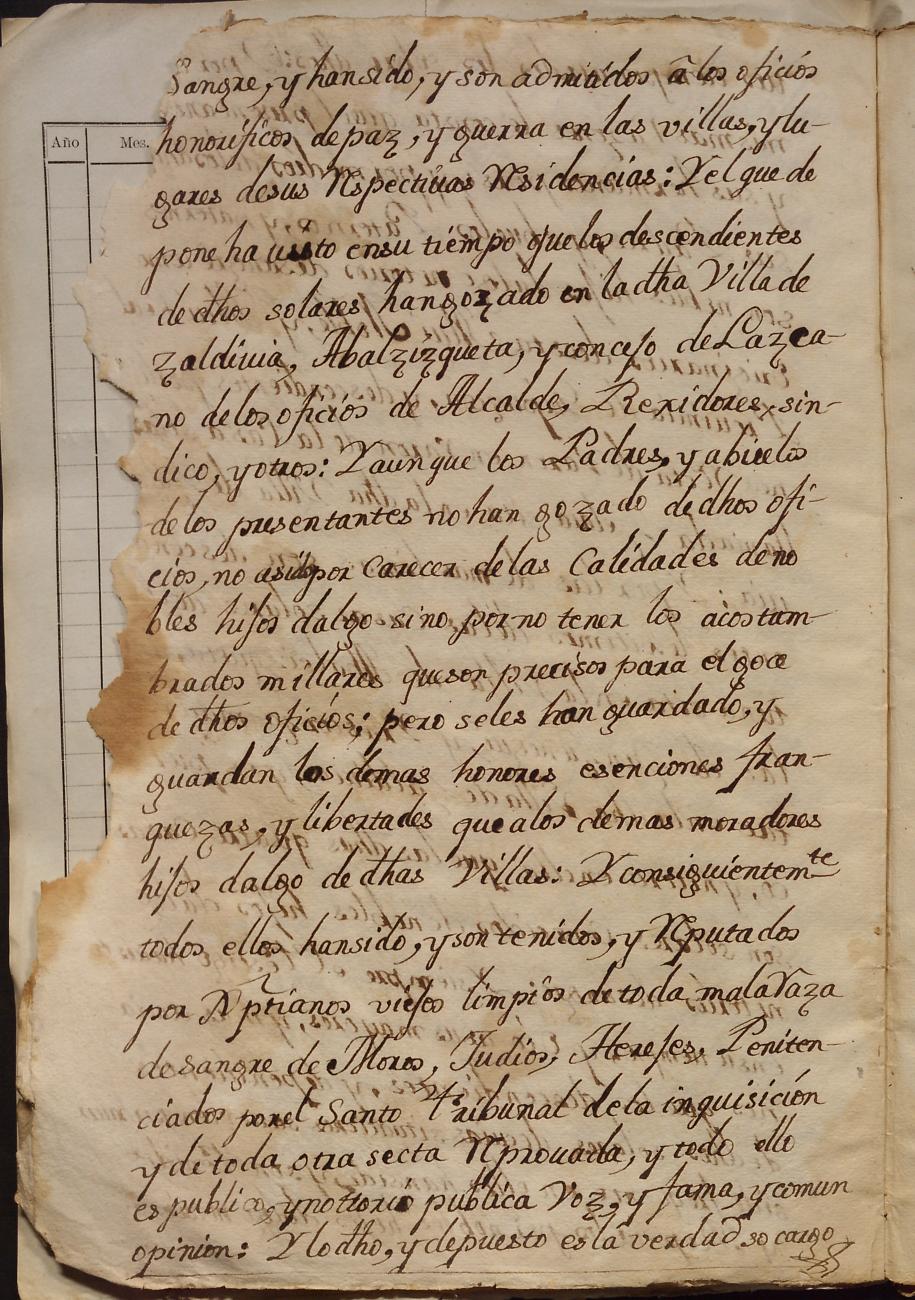 Año Mes.
Sangre, y han sido, y son admitidos â los oficios
honorificos de paz, y guerra en las villas, y lu-
gares de sus Respectiuas Residencias: Y el que de
pone ha uisto en su tiempo que los descendientes
de dhos solares han gozado en la dha Villa de
zaldiuia, Abalzizqueta, y concejo de Lazca-
no de los oficios de Alcalde, Rexidores, sin-
dico, y otros: Y aunque los Padres, y abuelos
de los presentantes no han gozado de dhos ofi-
cios, no a sido por carecer de las Calidades de no
bles hijos dalgo sino por no tener los acostum-
brados millares que son precisos para el goce
de dhos oficios; pero se les han guardado, y
guardan los demas honores esenciones fran-
quezas, y libertades que a los demas moradores
hijos dalgo de dhas Villas: Y consiguientemte
todos ellos han sido, y son tenidos, y Reputados
por Xptianos viejos limpios de toda mala Raza
de sangre de Moros, Judios, Herejes, Peniten-
ciados por el Santo tribunal de la inquisición
y de toda otra secta Reprouada, y todo ello
es publico, y nottorio publica Voz, y fama, y comun
opinion: Y lo dho, y depuesto es la verdad so cargo